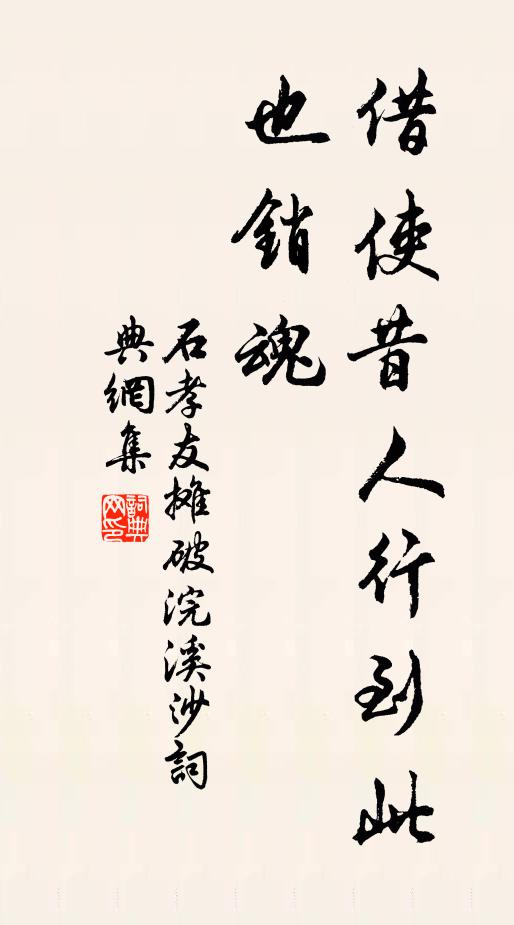 借使昔人行到此
也銷魂
石孝友攤破浣溪沙詞
典網集
詞典
网印